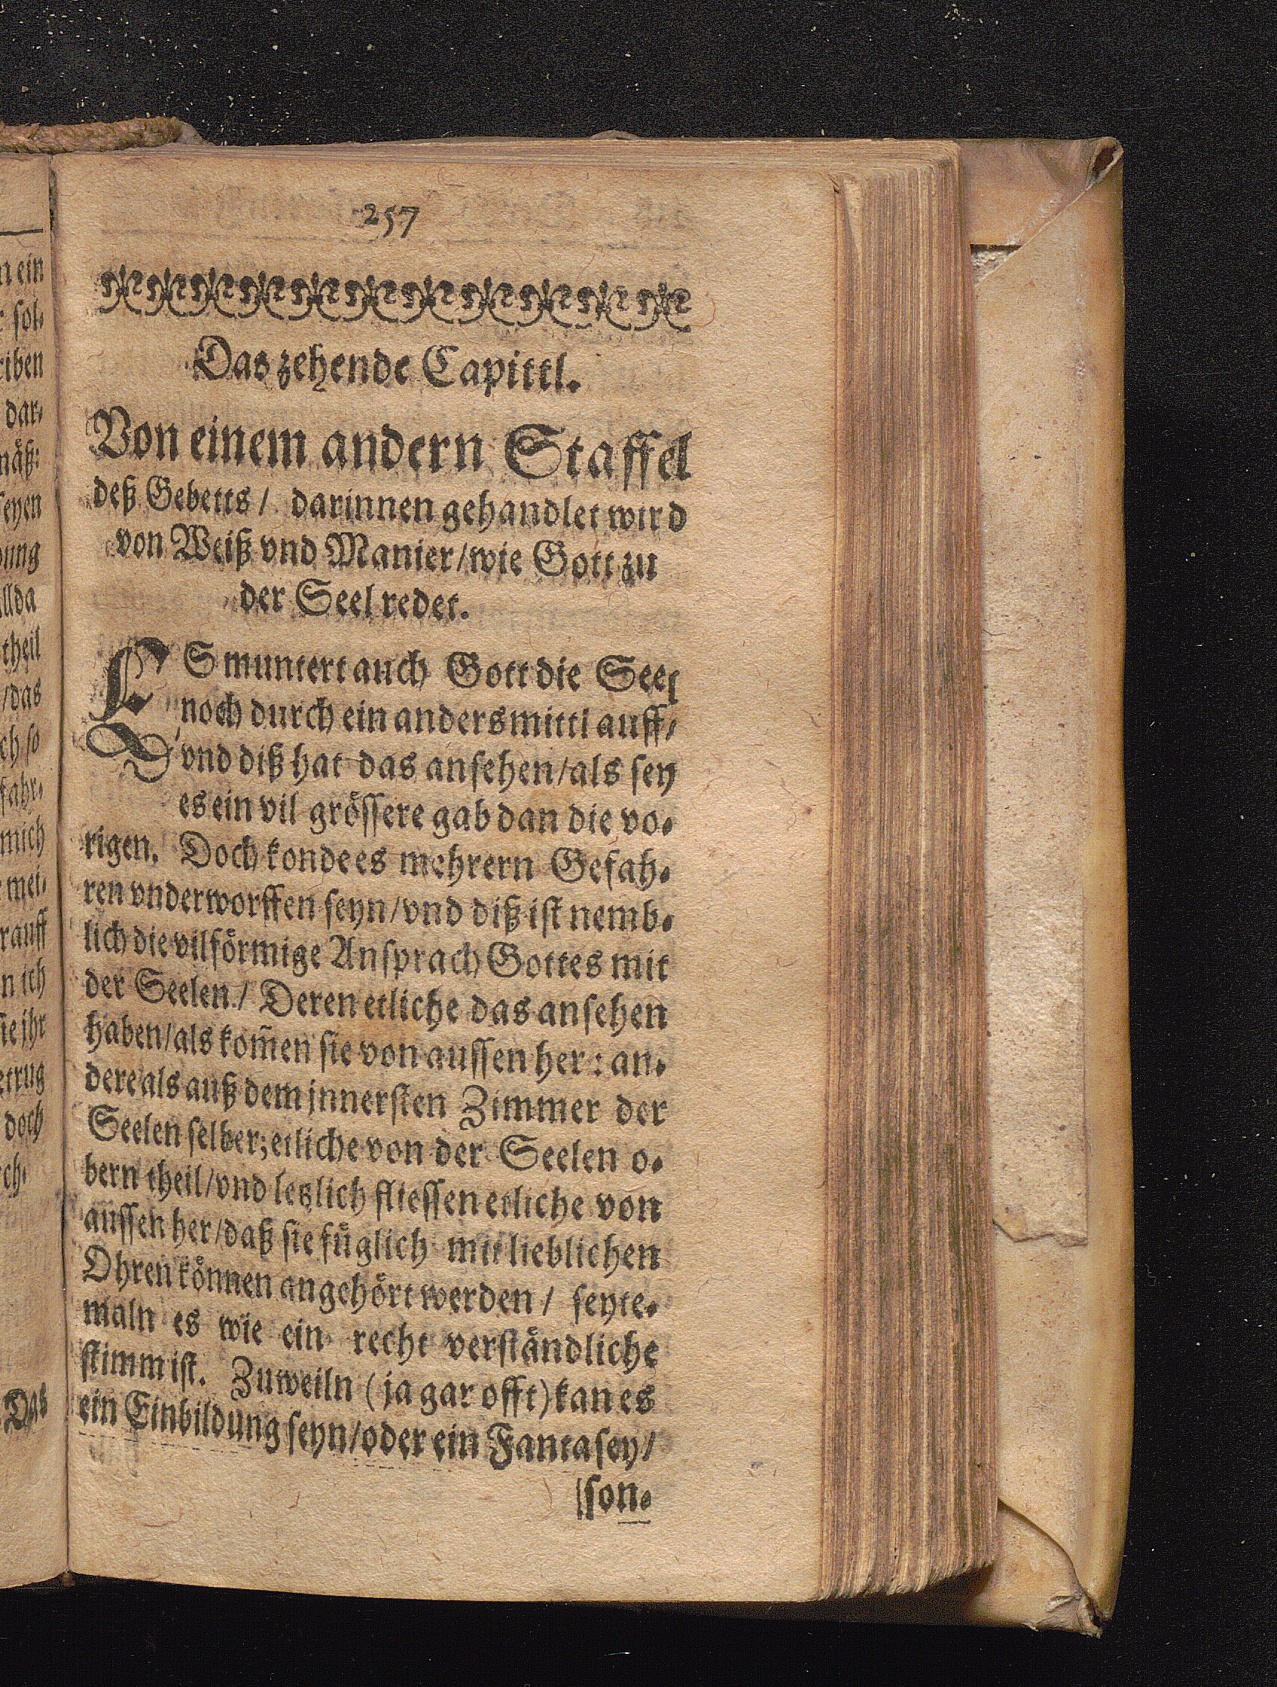 257
Das zehende Capittl.
Von einem andern Staffel
deß Gebetts / darinnen gehandlet wird
von Weiß vnd Manier / wie Gott zu
der Seel redet.
ES muntert auch Gott die Seel
noch durch ein anders mittl auff /
vnd diß hat das ansehen / als sey
es ein vil grössere gab dan die vo-
rigen. Doch konde es mehrern Gefah-
ren vnderworffen seyn / vnd diß ist nemb-
lich die vilförmige Ansprach Gottes mit
der Seelen / Deren etliche das ansehen
haben / als kom̃en sie von aussen her : an-
dere als auß dem jnnersten Zimmer der
Seelen selber; etliche von der Seelen o-
bern theil / vnd letzlich fliessen etliche von
aussen her / daß sie füglich mit lieblichen
Ohren können angehört werden / seyte-
maln es wie ein recht verständliche
stimm ist. Zuweiln (ja gar offt) kan es
ein Einbildung seyn / oder ein Fantasey /
son-
n ein
sol-
riben
dar-
mäß:
seyen
bung
allda
theil
/ das
ch so
fahr-
mich
mei-
rauff
n ich
sie jhr
etrug
doch
ch-
Das